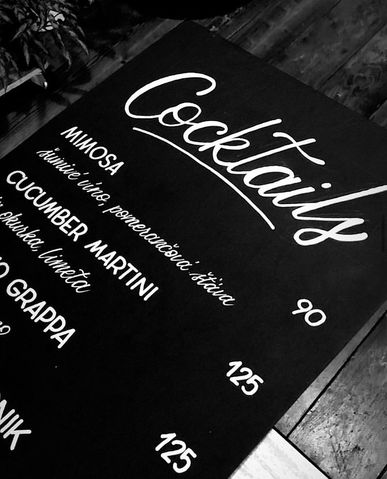 Cocktails
MIMOSA 90
šumivé víno, pomerančová šťáva
CUCUMBER MARTINI 125
okurka, limeta
GRAPPA 125